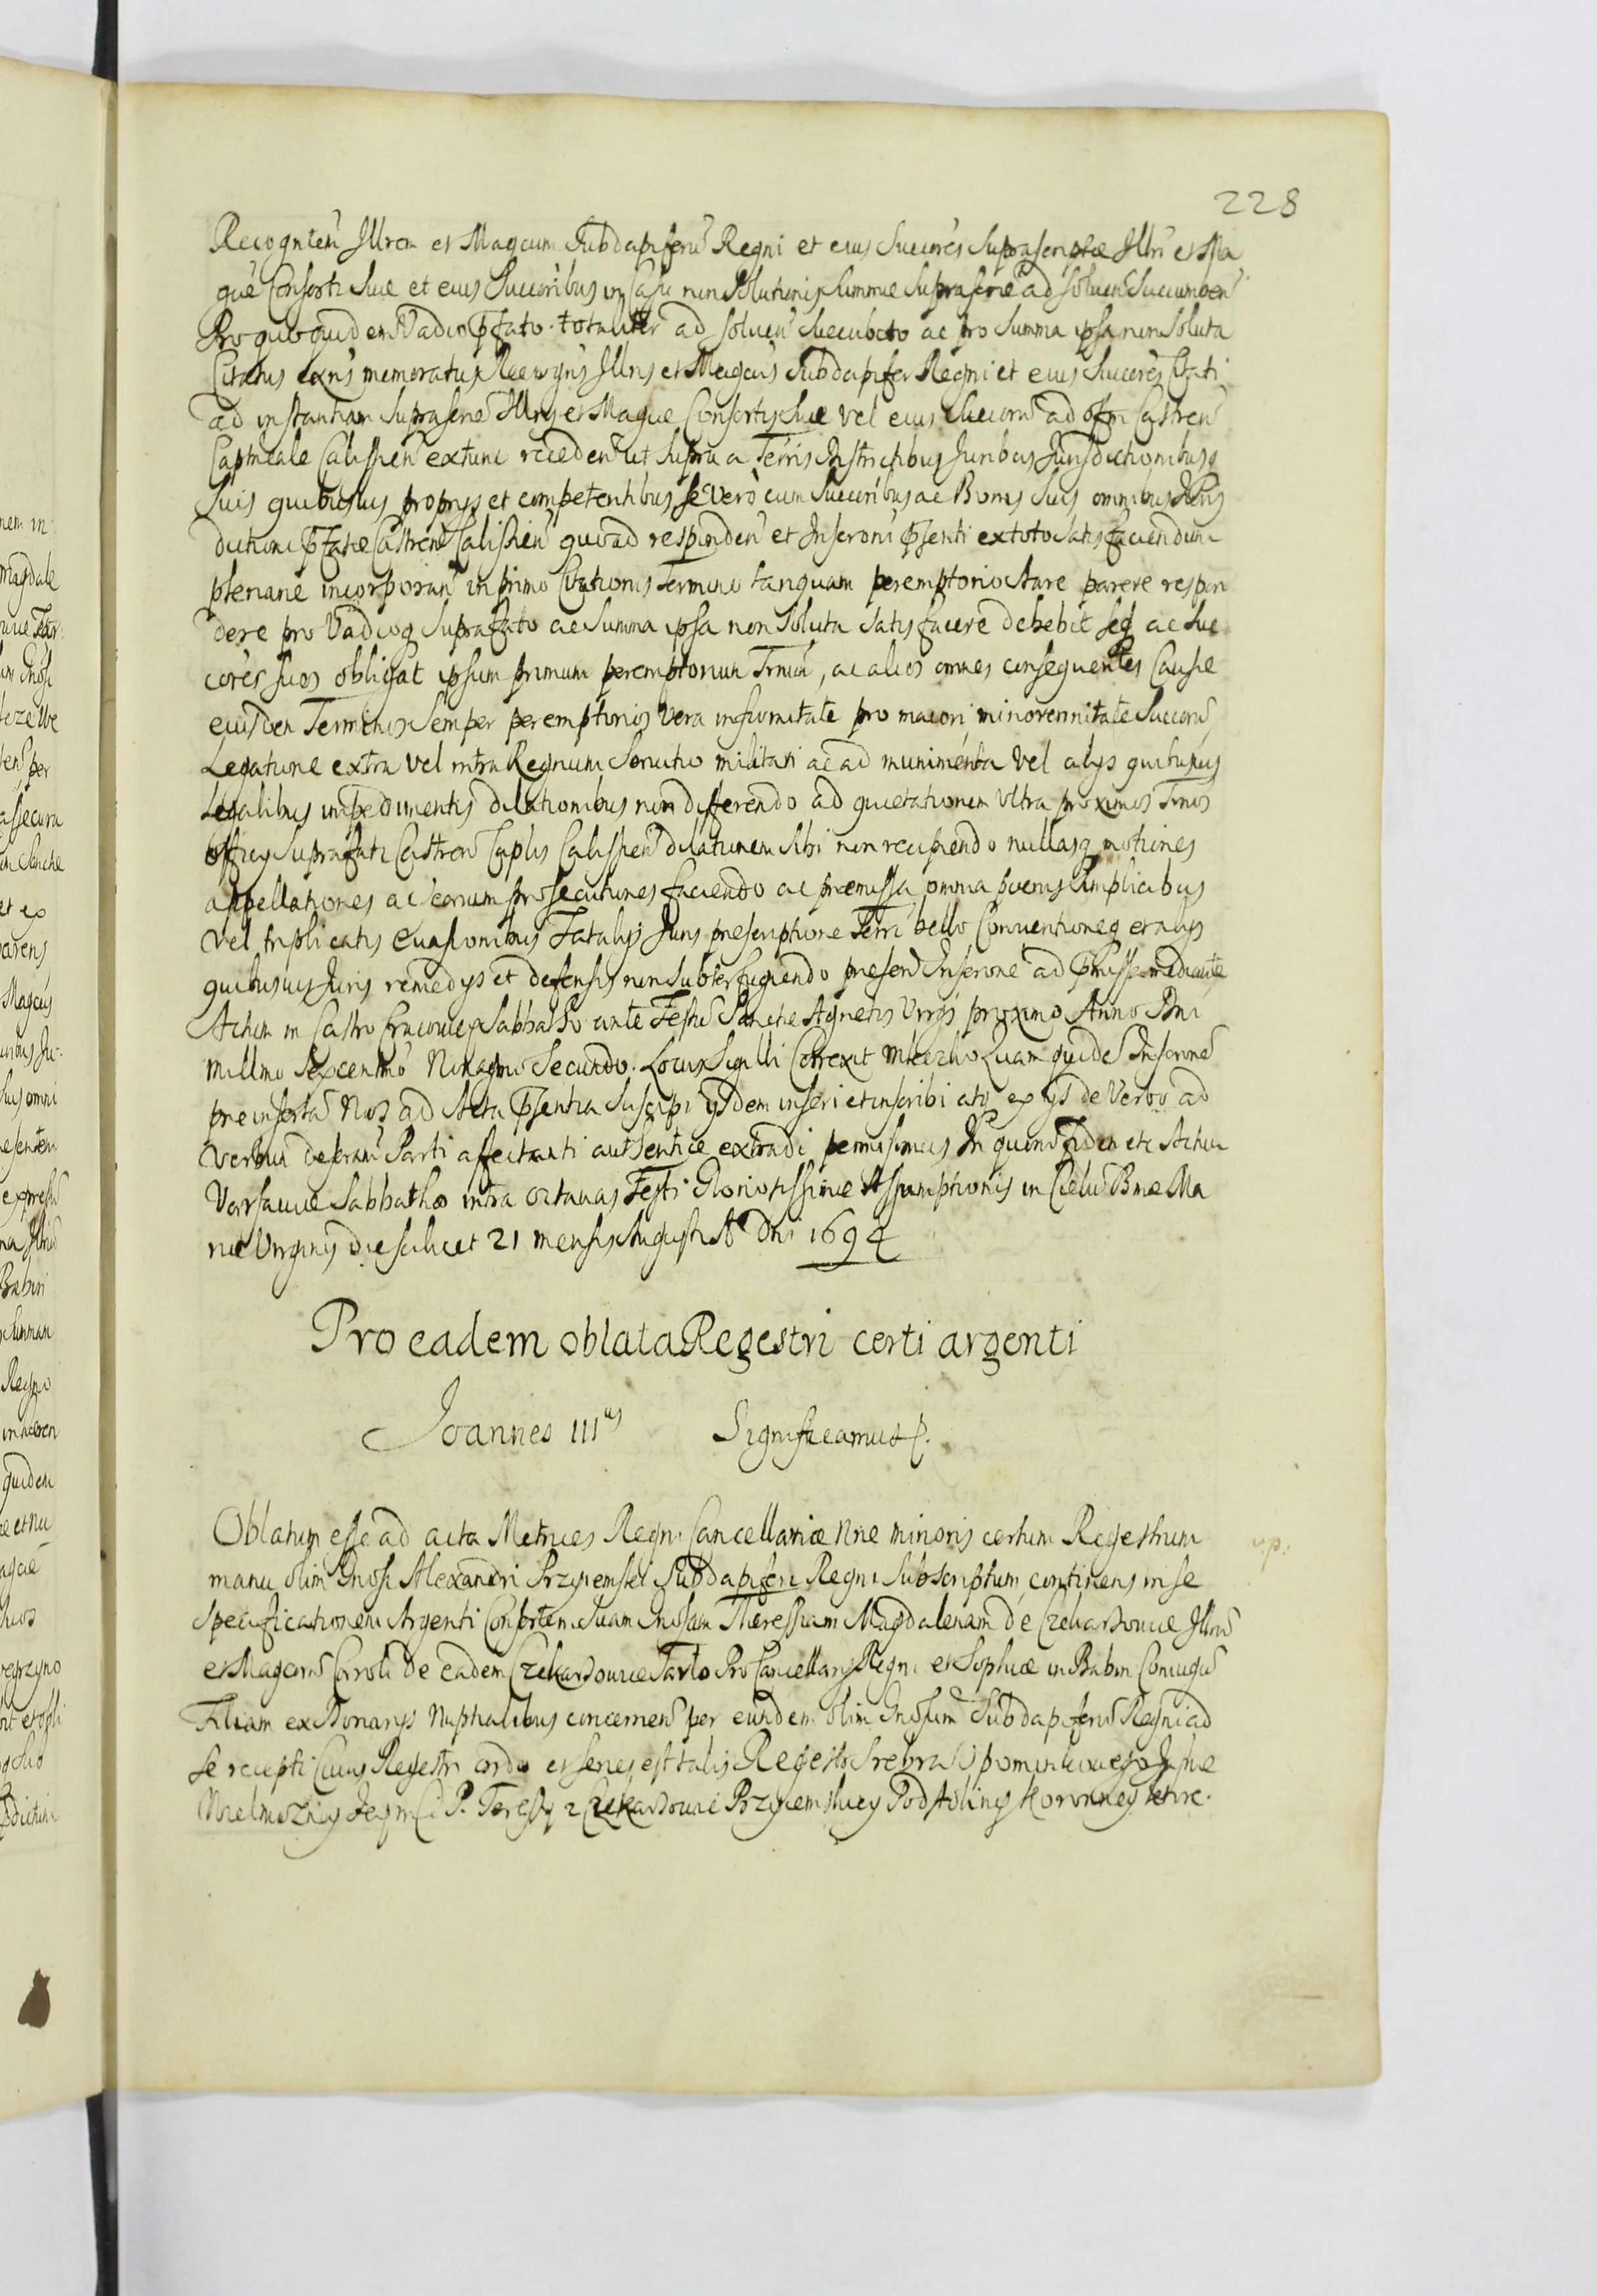 228
Recognten Illrem et Magcum Subdapiferũ Regni et eius Succores suprascriptæ Illri et Ma
gcæ Consorti suæ et eius Succoribus in Casu non solutionis summæ suprascræ ad soluen succumben
Pro quo quidem Vadio pfato totaliter ad soluen succubito ac pro summa ipsa non soluta
Citatus exns memoratus Recogns Illris et Magcus Subdapifer Regni et eius Succores Citati
ad instantiam suprascræ Illris et Magcæ Consortis suæ vel eius Succorũ ad offm Castren
Capitneale Calissien extunc receden ut supra a Terris Districtibus Juribus Jurisdictionibusq
suis quibusuis proprys et competentibus se vero cum Succoribus ac Bonis suis omnibus Juris
dictioni pfatæ Castren Calissien quoad responden et Inscroni psenti ex toto satisfaciendum
plenarie incorporan in primo Citationis Termino tanquam peremptorio stare parere respon
dere pro Vadioq suprafato ac summa ipsa non soluta satisfacere debebit seq ac suc
cores suos obligat ipsum primum peremptorium Trnum, ac alios omnes consequentes Causæ
eiusdem Terminos semper peremptorios vera infirmitate pro maiori minorennitate Succorũ
Legatione extra vel intra Regnum seruitio militari ac ad munimenta vel alys quibusuis
Legalibus impedimentis dilationibus non differendo ad quietationem ultra proximos Trnos
officy suprafati Castren Caplis Calissien dilationem sibi non recipiendo nullasq motiones
appellationes ac earum prosecutiones faciendo ac præmissa omnia poenis duplicibus
vel triplicatis euasionibus Fatalys Juris præscriptione Terri bello Conuentioneq et alys
quibusuis Juris remedys et defensis non subterfugiendo præsen Inscrone ad pmissa mediante
Actum in Castro Cracouien Sabbatho ante Festũ Sanctæ Agnetis Virgis proximo Anno Dni
Millmo Sexcentmo Nonagmo Secundo. Locus Sigilli Correxit Quam quidẽ Inscronẽ
præinsertã Nos ad Acta psentia suscipi ysdem inseri et inscribi atq ex ys de Verbo ad
Verbum descrptã Parti affectanti authentice extradi permisimus In quorũ fidem etc Actum
Varsauiæ Sabbatho intra octauas Festi Gloriosissimæ Assumptionis in Cælũ Bmæ Ma
riæ Virginis die scilicet 21 mensis Augusti Aº Dni 1694
Pro eadem oblata Regestri certi argenti
Joannes IIIus Significamus etc.
Oblatum esse ad acta Metrices Regni Cancellariæ nræ minoris certum Regestrum
manu olim Gnosi Alexandri Przyiemski Subdapiferi Regni subscriptum continens in se
specificationem Argenti Consortem suam Gnosam Theressiam Magdalenam de Czekarzouice Illriũ
et Magcorũ Caroli de eadem Czekarzouice Tarlo Pro Cancellary Regni et Sophiæ in Babin Coniugũ
Filiam ex Donarys Nuptialibus concernen per eundem olim Gnosum Subdapiferũ Regni ad
se recepti Cuius Regestri ordo et series est talis Regestr Srebra
Wielmozney Jeymci P. Teressy z Czekarzouic Przyiemskiey Podstoliney Koronney